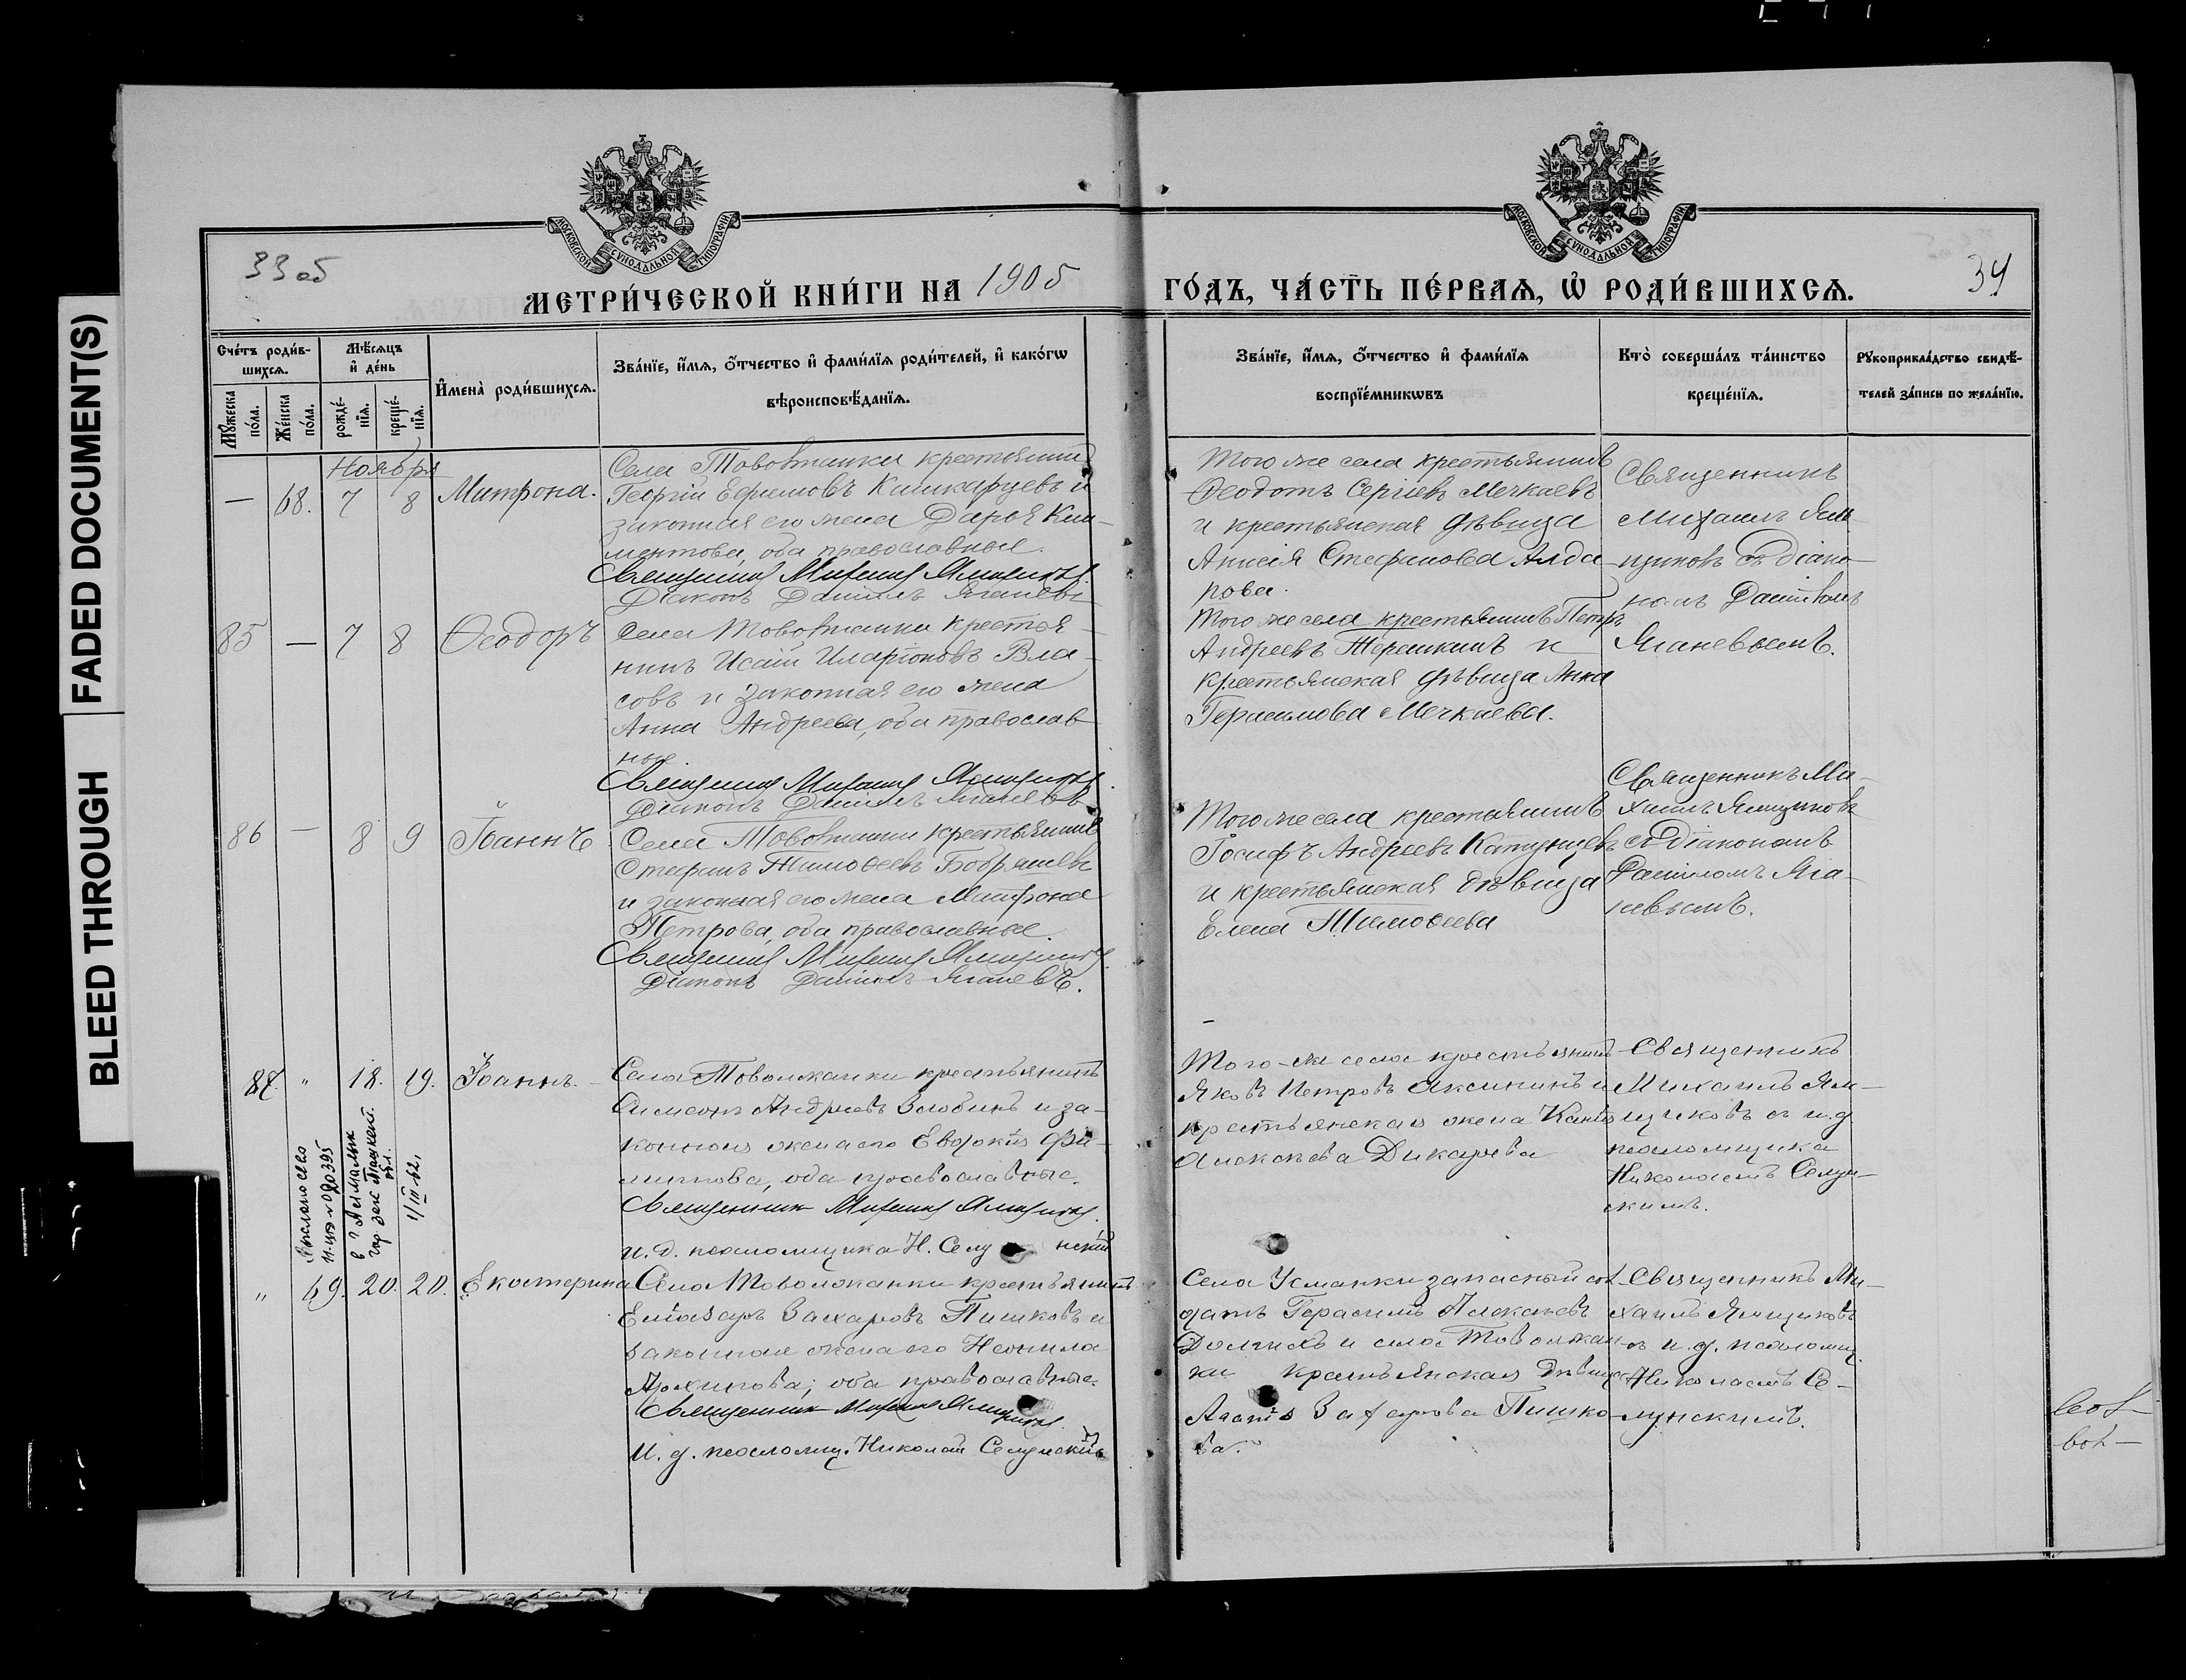 FADED DOCUMENT(S)
BLEED THROUGH
МОСКОВСКОЙ СѴНОДАЛЬНОЙ ТИПОГРАФІИ
МОСКОВСКОЙ СѴНОДАЛЬНОЙ ТИПОГРАФІИ
33 об
34
МЕТРИ́ЧЕСКОЙ КНИ́ГИ НА 1905 ГО́ДЪ, ЧА́СТЬ ПЕ́РВАѦ, Ѡ҆ РОДИ́ВШИХСѦ.
Сче́тъ роди́в-
шихсѧ.
Мꙋ́жеска
по́ла.
Же́нска
по́ла.
Мѣ́сѧцъ
и҆ де́нь
рожде́-
нїѧ.
креще́-
нїѧ.
И҆мена̀ роди́вшихсѧ.
Зва́нїе, и҆́мѧ, ѻ҆́тчество и҆ фами́лїѧ роди́телей, и҆ како́гѡ
вѣроисповѣ́данїѧ.
Зва́нїе, и҆́мѧ, ѻ҆́тчество и҆ фами́лїѧ
воспрїе́мникѡвъ
Кто̀ соверша́лъ та́инство
креще́нїѧ.
Рꙋкоприкла́дство свидѣ́-
телей за́писи по жела́нїю.
Ноября
— 68. 7 8 Митрона.
Села Товолжанки крестьянинъ
Георгій Ефимовъ Кашкарцевъ и
законная его жена Дарья Кли-
ментова, оба православные.
Священникъ Михаилъ Ямщиковъ.
Діаконъ Даніилъ Яганевъ
Того же села крестьянинъ
Ѳеодотъ Сергіевъ Мечкаевъ
и крестьянская дѣвица
Анисія Стефанова Алда
рова.
Священникъ
Михаилъ Ям-
щиковъ съ діако-
номъ Даніиломъ
Яганевымъ.
85 — 7 8 Ѳеодоръ
Села Товолжанки крестья-
нинъ Исаія Иларіоновъ Вла-
совъ и законная его жена
Анна Андреева, оба православ-
ные
Священникъ Михаилъ Ямщиковъ.
Діаконъ Даніилъ Яганевъ
Того же села крестьянинъ Петръ
Андреевъ Терешкинъ и
крестьянская дѣвица Анна
Герасимова Мечкаева.
86 — 8 9 Іоаннъ
Села Товолжанки крестьянинъ
Стефанъ Тимоѳеевъ Бобряшевъ
и законная его жена Митрона
Петрова, оба православные.
Священникъ Михаилъ Ямщиковъ.
Діаконъ Даніилъ Яганевъ.
Того же села крестьянинъ
Іосифъ Андреевъ Катунцевъ
и крестьянская дѣвица
Елена Тимоѳеева
Священникъ Ми-
хаилъ Ямщиковъ
съ діакономъ
Даніиломъ Яга-
невымъ.
87. " 18. 19. Іоаннъ.
Села Товолжанки крестьянинъ
Симеонъ Андреевъ Злобинъ и за-
конная жена его Евдокія Фи-
липпова, оба православные.
Священникъ Михаилъ Ямщиковъ.
и. д. псаломщика Н. Селунскій
Того-же села крестьянинъ
Яковъ Петровъ Аксининъ и
крестьянская жена
Алексѣева Дикарева
Священникъ
Михаилъ Ям-
щиковъ съ и. д.
псаломщика
Николаемъ Селун-
скимъ.
" 69. 20. 20. Екатерина
Села Товолжанки крестьянинъ
Елiазаръ Захаровъ Пишковъ и
законная жена его Неонила
Архипова, оба православные.
Священникъ Михаилъ Ямщиковъ.
И. д. псаломщ. Николай Селунскій
Села Усманки запасный сол
датъ Герасимъ Алексѣевъ
Долгихъ и села Товолжан-
ки крестьянская дѣвица
Агапія Захарова Пишко-
ва.
Священникъ Ми-
хаилъ Ямщиковъ
съ и. д. псаломщ.
Николаемъ Се-
лунскимъ.